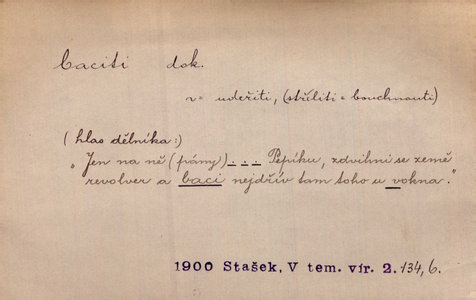 baciti dok.
v= udeřiti, (stříliti = bouchnouti)
(hlas dělníka:)
"Jen na ně (pány) . . . Pepíku, zdvihni se země
revolver a baci nejdřív tam toho u vokna."
1900 Stašek, V tem. vír. 2. 134, 6.